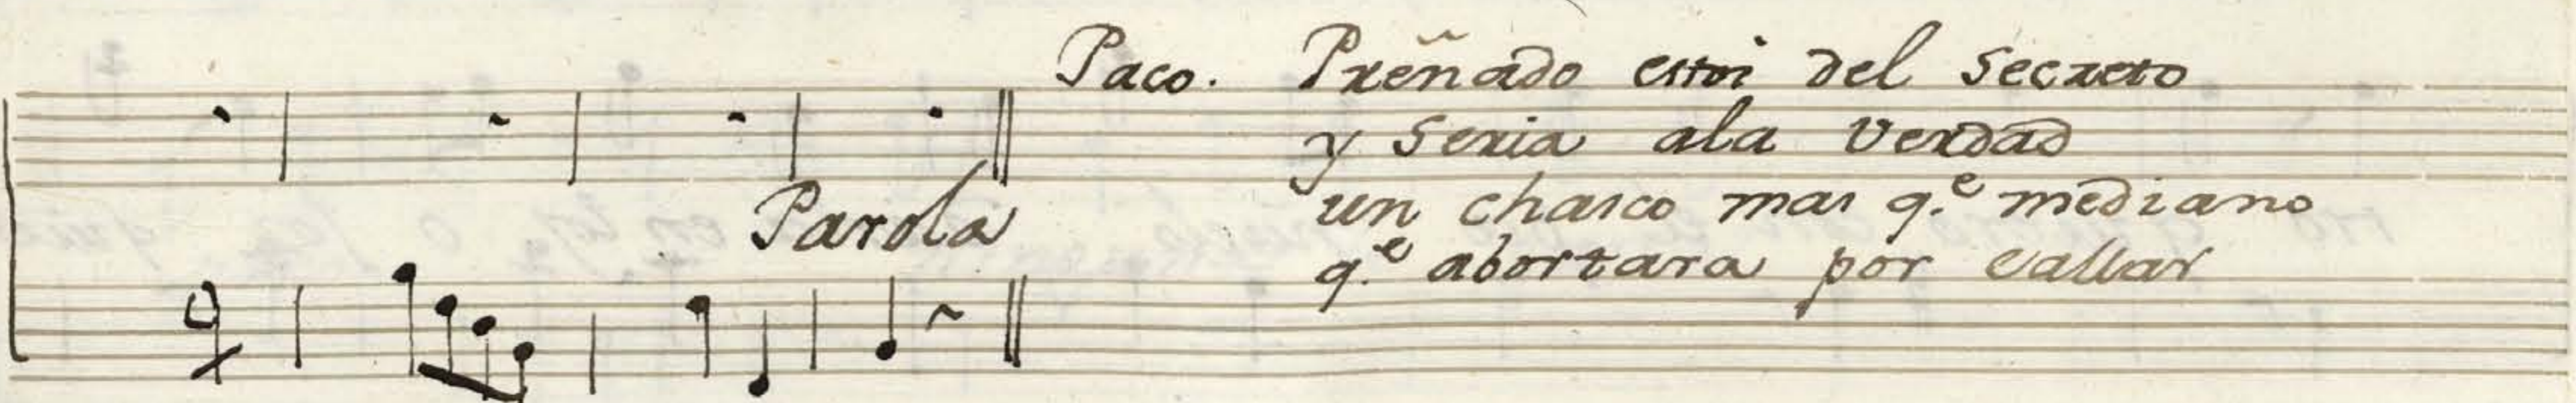 Paco. Preñado estoi del secreto
y seria ala verdad
Parola
un chasco mas q.e mediano
q.e abortara por callar